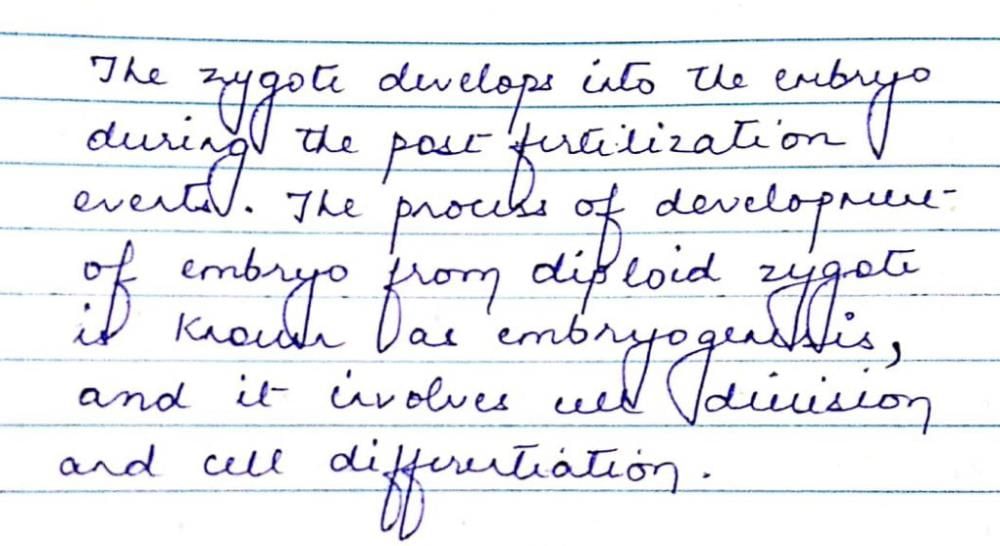 The zygote develops into the embryo
during the post fertilization
events. The process of development
of embryo from diploid zygote
is known as embryogenesis,
and it involves cell division
and cell differentiation.